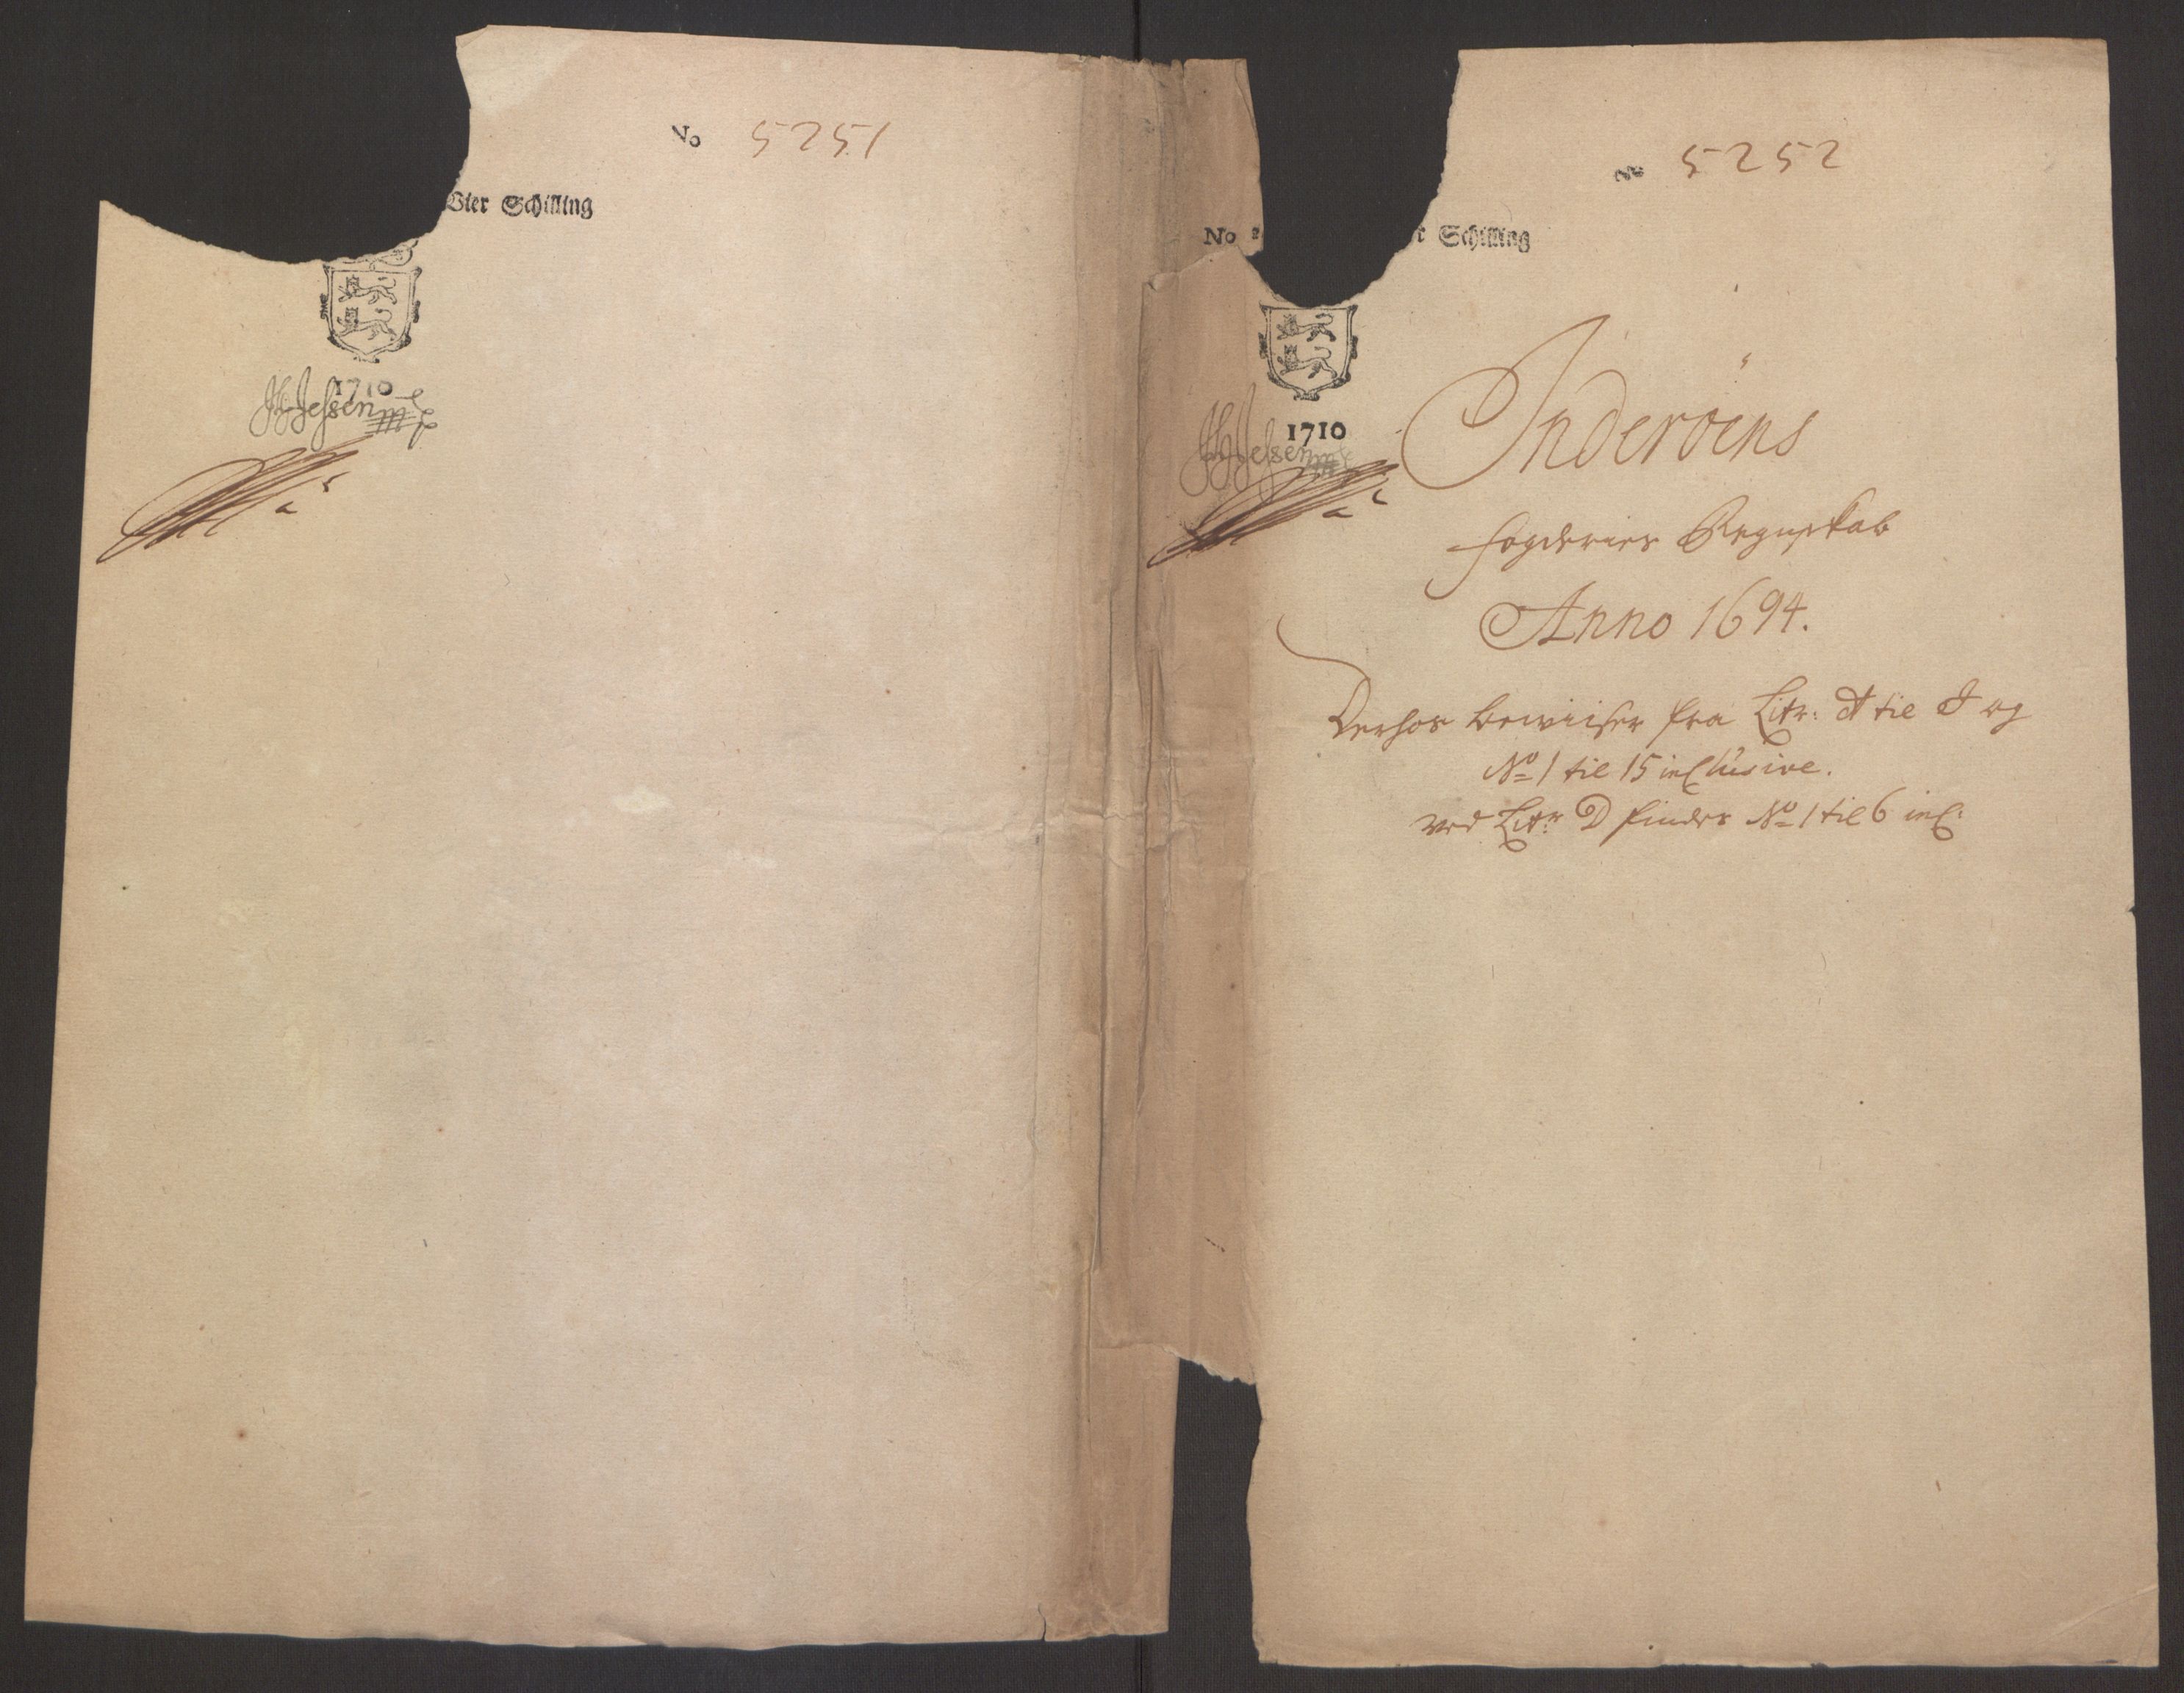 No 5251
Vier Schilling
1710
HJessen mp
No 5252
No 2 r Schilling
1710
HJessen
Inderöens
fogderies Regnskab
Anno 1694.
Derhos bewiiser fra Litr: A til I og
No 1 til 15 inclusive.
ved Litr D findes No 1 til 6 incl: